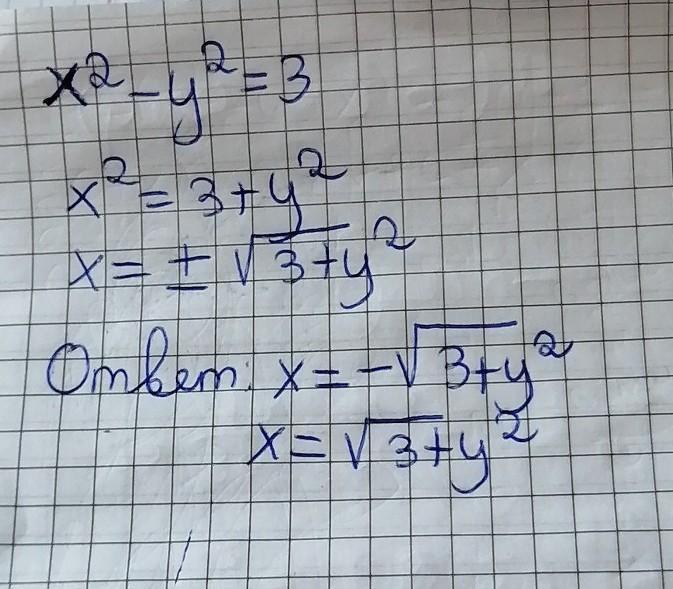 x² - y² = 3
x² = 3 + y²
x = ± √3 + y²
Ответ: x = -√3 + y²
x = √3 + y²